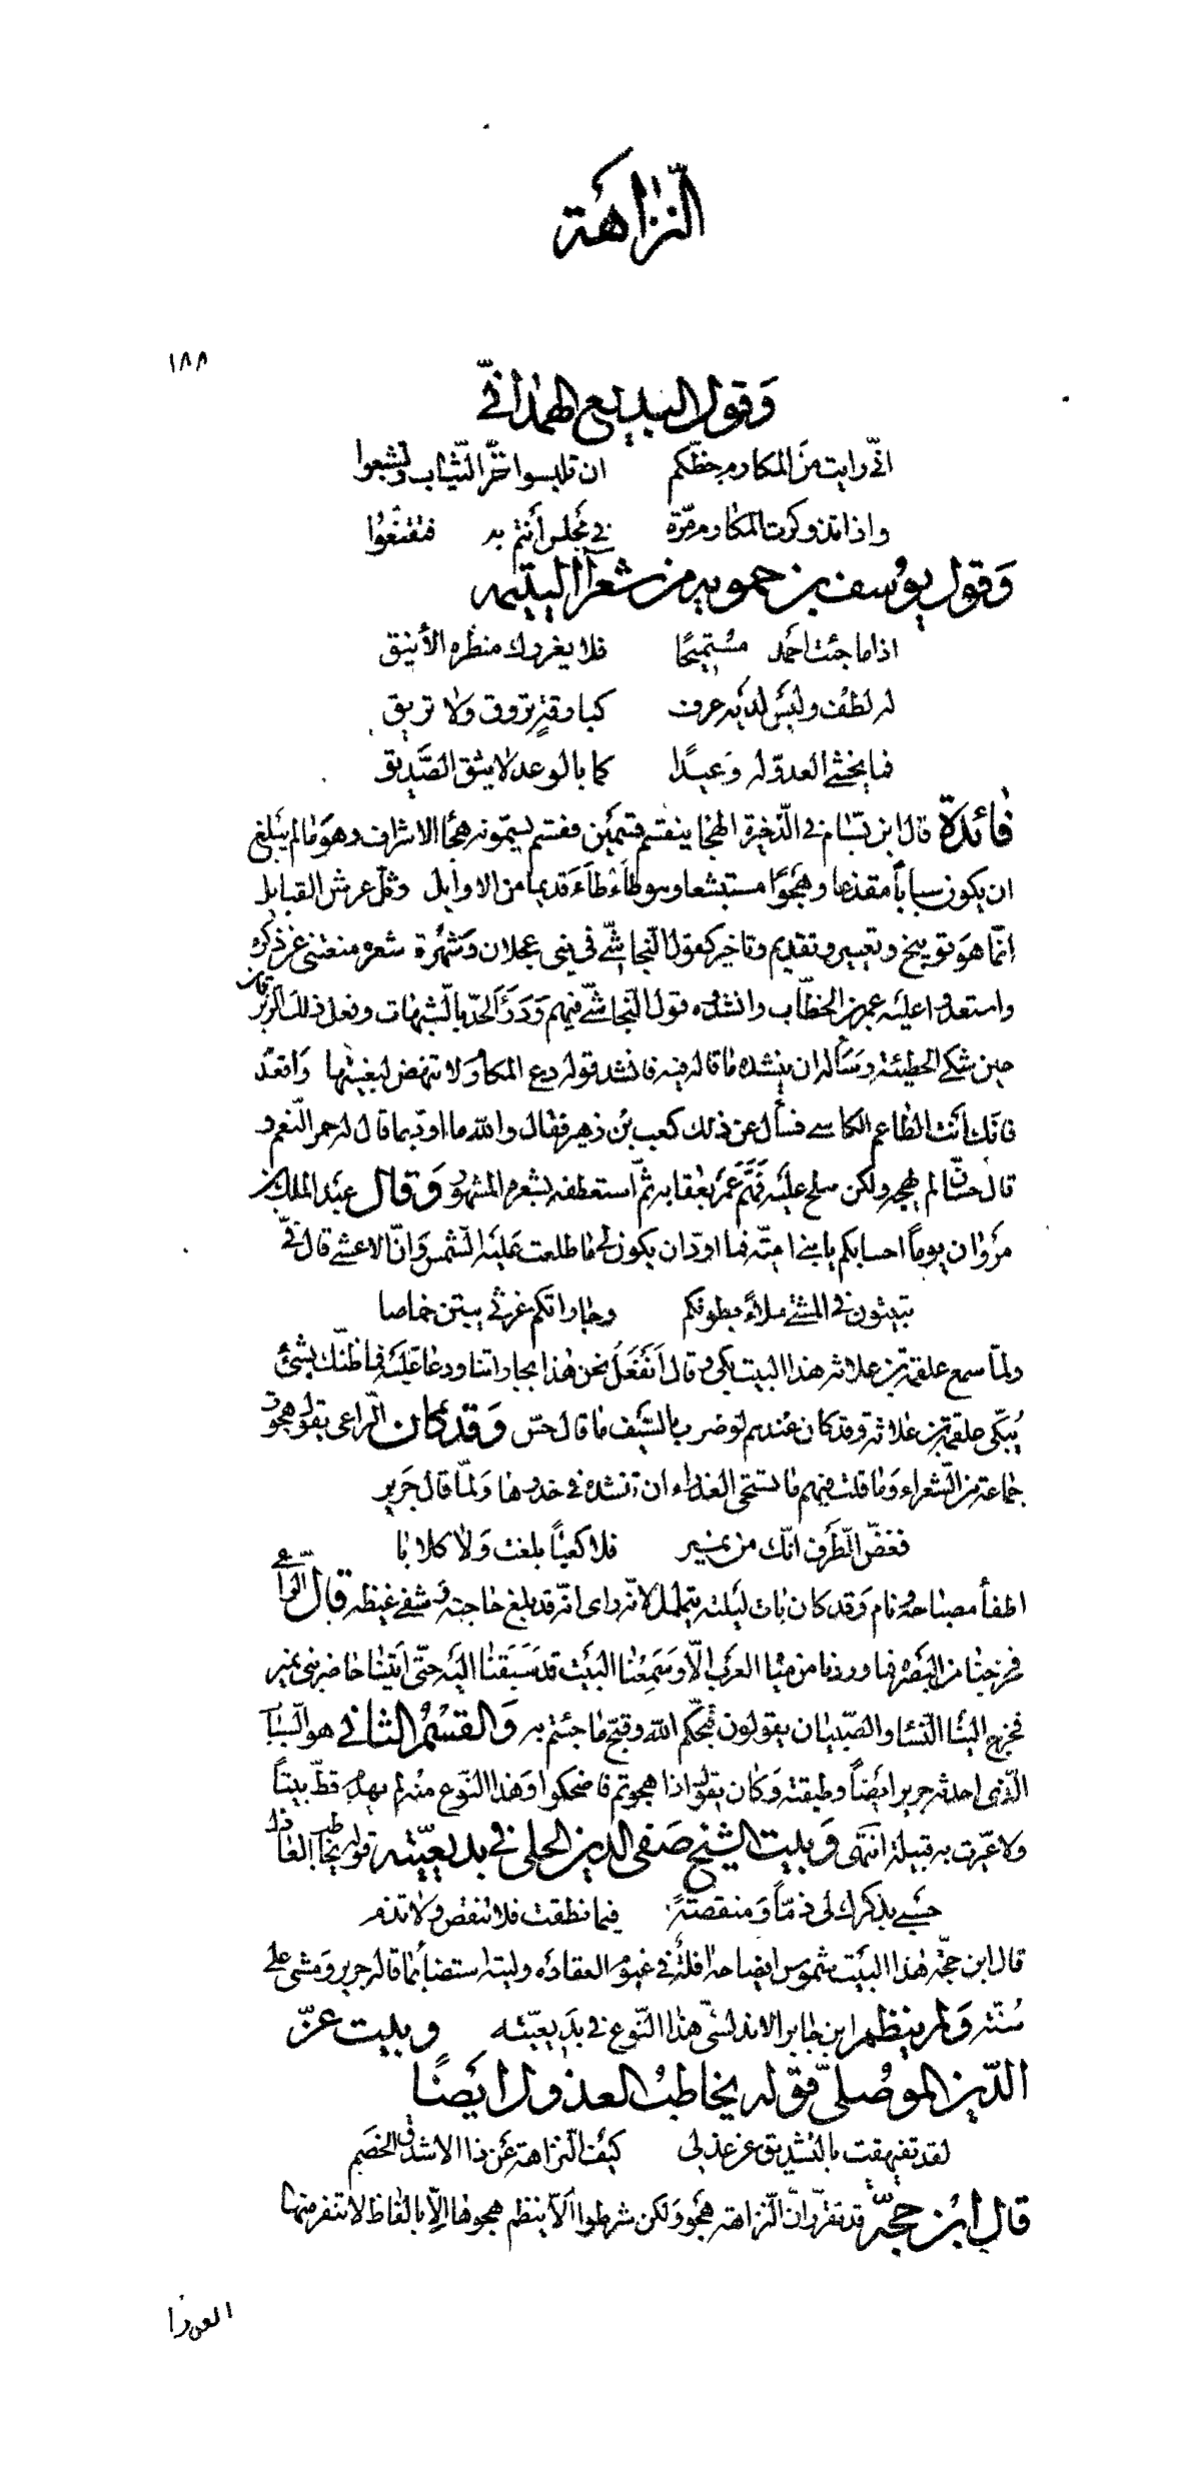 النزاهة
١٨٨
وقول البديع الهمذاني
اني رايت من المكارم حظكم ان تلبسوا خز الثياب وتشبعوا
واذا تذوكرت المكارم مرة في مجلس أنتم به فتقنعوا
وقول يوسف بن حمويه من شعرآ اليتيمه
اذا ما جئت احمد مستميحا فلا يغررك منظره الأنيق
له لطف وليس لديه عرف كبارقة تروق ولا تريق
فما يخشى العدو له وعيدا كما بالوعد لا يثق الصديق
فائدة قال ابن بسام في الذخيرة الهجا ينقسم قسمين فقسم يسمونه هجا الاشراف وهو ما لم يبلغ
ان يكون سبابا مقذعا وهجوا مستبشعا وهو طأطأ قديما من الاوايل وثل عرش القبايل
انما هو توبيخ وتعيير وتقديم وتاخير كقول النجاشي في بني عجلان وشهرة شعره منعتني عن ذكره
واستعدوا عليه عمر بن الخطاب وانشدوه قول النجاشي فيهم ودرأ الحد بالشبهات وفعل ذلك الزبرقان
حين شكى الحطيئة وسأله ان ينشده ما قاله فيه فانشد قوله دع المكارم لا تنهض لبغيتها واقعد
فانك أنت الطاعم الكاسي فسأل عن ذلك كعب بن زهير فقال والله ما اود بما قال له حمر النعم و
قال حسان لم يهجه ولكن سلح عليه فهم عمر بعقابه ثم استعطفه بشعره المشهور وقال عبد الملك بن
مروان يوما احسابكم يا بني امية فما اود ان يكون لي ما طلعت عليه الشمس وان الاعشى قال في
تبيتون في المشتى ملاء بطونكم وجاراتكم غرثى يبتن خماصا
ولما سمع علقمة بن علاثه هذا البيت بكى وقال أنفعل نحن هذا بجاراتنا ودعا عليه فما ظنك بشئ
يبكى علقمة بن علاثة وقد كان عندهم لو ضرب بالسيف ما قال حس وقد كان الراعي يقول هجوت
جماعة من الشعراء وما قلت فيهم ما تستحي العذراء ان تنشده في خدرها ولما قال جرير
فغض الطرف انك من نمير فلا كعبا بلغت ولا كلابا
اطفأ مصباحه ونام وقد كان بات ليلته يتململ لانه راى انه قد بلغ حاجته وشفى غيظه قال الراعي
فخرجنا من البصره فما وردنا من مياه العرب الا وسمعنا البيت قد سبقنا اليه حتى اتينا حاضر بني نمير
فخرج الينا النسا والصبيان يقولون قبحكم الله وقبح ما جئتم به والقسم الثاني هو السباب
الذي احدثه جرير ايضا وطبقته وكان يقول اذا هجوتم فاضحكوا وهذا النوع منه لم يهدم قط بيتا
ولا عيرت به قبيلة انتهى وبيت الشيخ صفي الدين الحلي في بديعيته قوله يخاطب العاذل
حسبي بذكرك لي ذما ومنقصة فيما نطقت فلا تنقص ولا تذم
قال ابن حجة هذا البيت شموس ايضاحه افلة في غيوم العقاده وليته استضأ بما قاله جرير ومشى على
سننه ولم ينظم ابن جابر الاندلسي هذا النوع في بديعيته وبيت عز
الدين الموصلي قوله يخاطب العذول ايضا
لقد تفيهقت بالتشديق عن عذلي كيف النزاهة عن ذا الاشدق الخصم
قال ابن حجة قد تقرر ان النزاهة هجو ولكن شرطوا ألا ينظم هجوها الا بالفاظ لا تنفر منها
العذرا